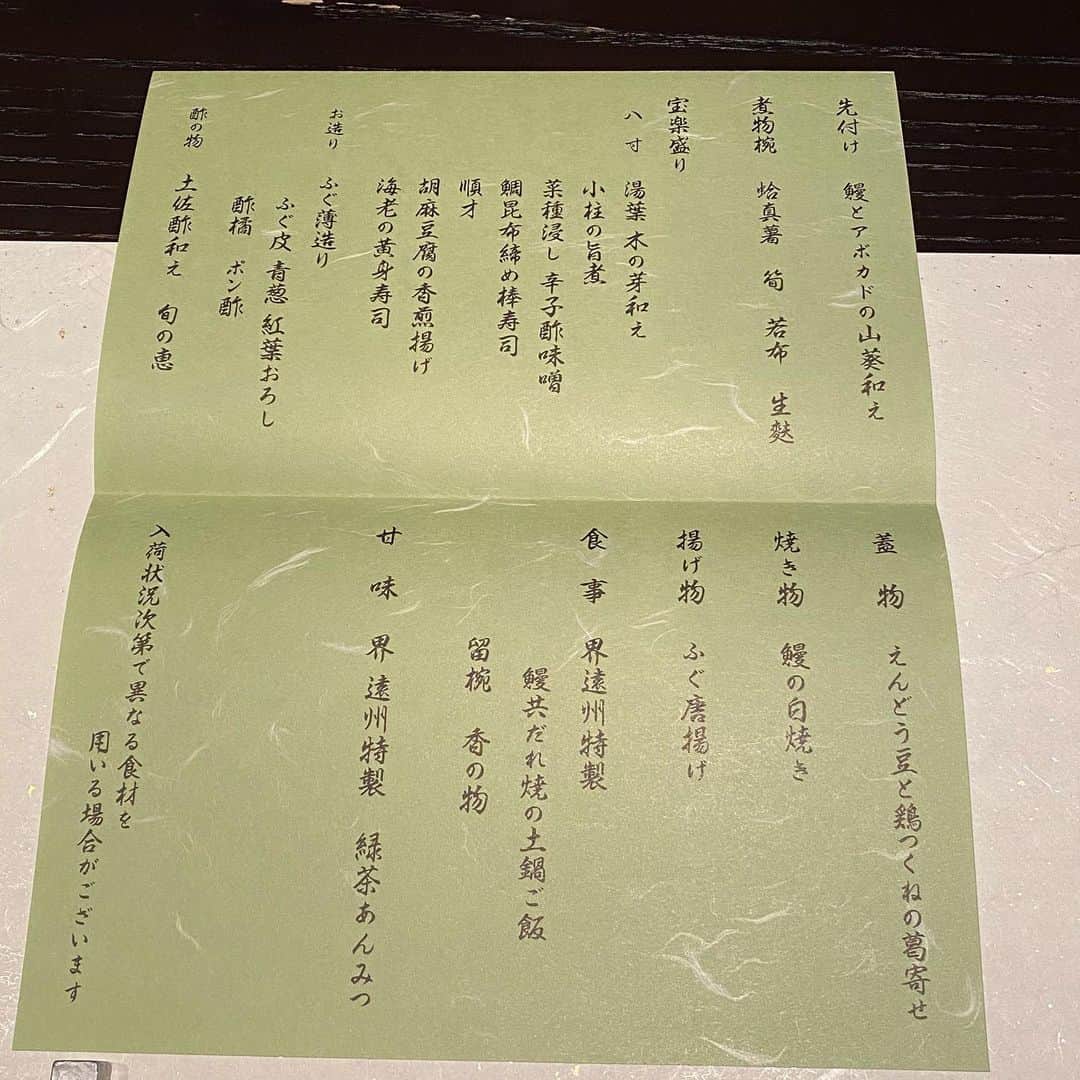 先付け　鰻とアボカドの山葵和え
煮物椀　蛤真薯　筍　若布　生麩
宝楽盛り
八寸　湯葉 木の芽和え
小柱の旨煮
菜種浸し 辛子酢味噌
鯛昆布締め棒寿司
順才
胡麻豆腐の香煎揚げ
海老の黄身寿司
お造り　ふぐ薄造り
ふぐ皮 青葱 紅葉おろし
酢橘　ポン酢
酢の物　土佐酢和え　旬の恵
蓋　物　えんどう豆と鶏つくねの葛寄せ
焼き物　鰻の白焼き
揚げ物　ふぐ唐揚げ
食　事　界遠州特製
鰻共だれ焼の土鍋ご飯
留椀　香の物
甘　味　界 遠州特製　緑茶あんみつ
入荷状況次第で異なる食材を
用いる場合がございます